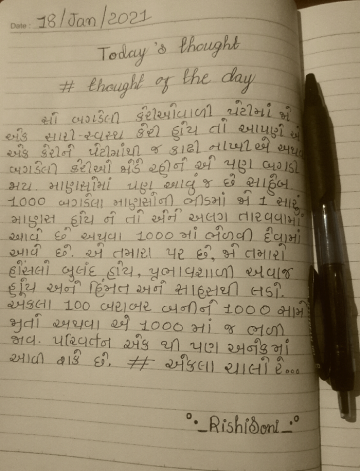 Date: 18/Jan/2021
Today's thought
# thought of the day
સો બગડેલી કેરીઓવાળી પેટીમાં જો
એક સારી-સ્વસ્થ કેરી હોય તો આપણે એ
એક કેરીને પેટીમાંથી જ કાઢી નાખીએ અથવા
બગડેલી કેરીઓ ભેડે રહીને એ પણ બગડી
જાય. માણસોમાં પણ આવું જ છે સાહેબ
1000 બગડેલા માણસોની ભીડમાં જો 1 સારું
માણસ હોય ને તો એને અલગ તારવવામાં
આવે છે અથવા 1000 માં ભેળવી દેવામાં
આવે છે. એ તમારા પર છે, જો તમારો
હોંસલો બુલંદ હોય, પ્રભાવશાળી અવાજ
હોય અને હિંમત અને સાહસથી લડો.
એકલા 100 બરાબર બનીને 1000 સામે
જીતો અથવા એ 1000 માં જ ભળી
જાવ. પરિવર્તન એક થી પણ અનેકમાં
આવી શકે છે. # એકલા ચાલો રે...
°•_RishiSoni_•°